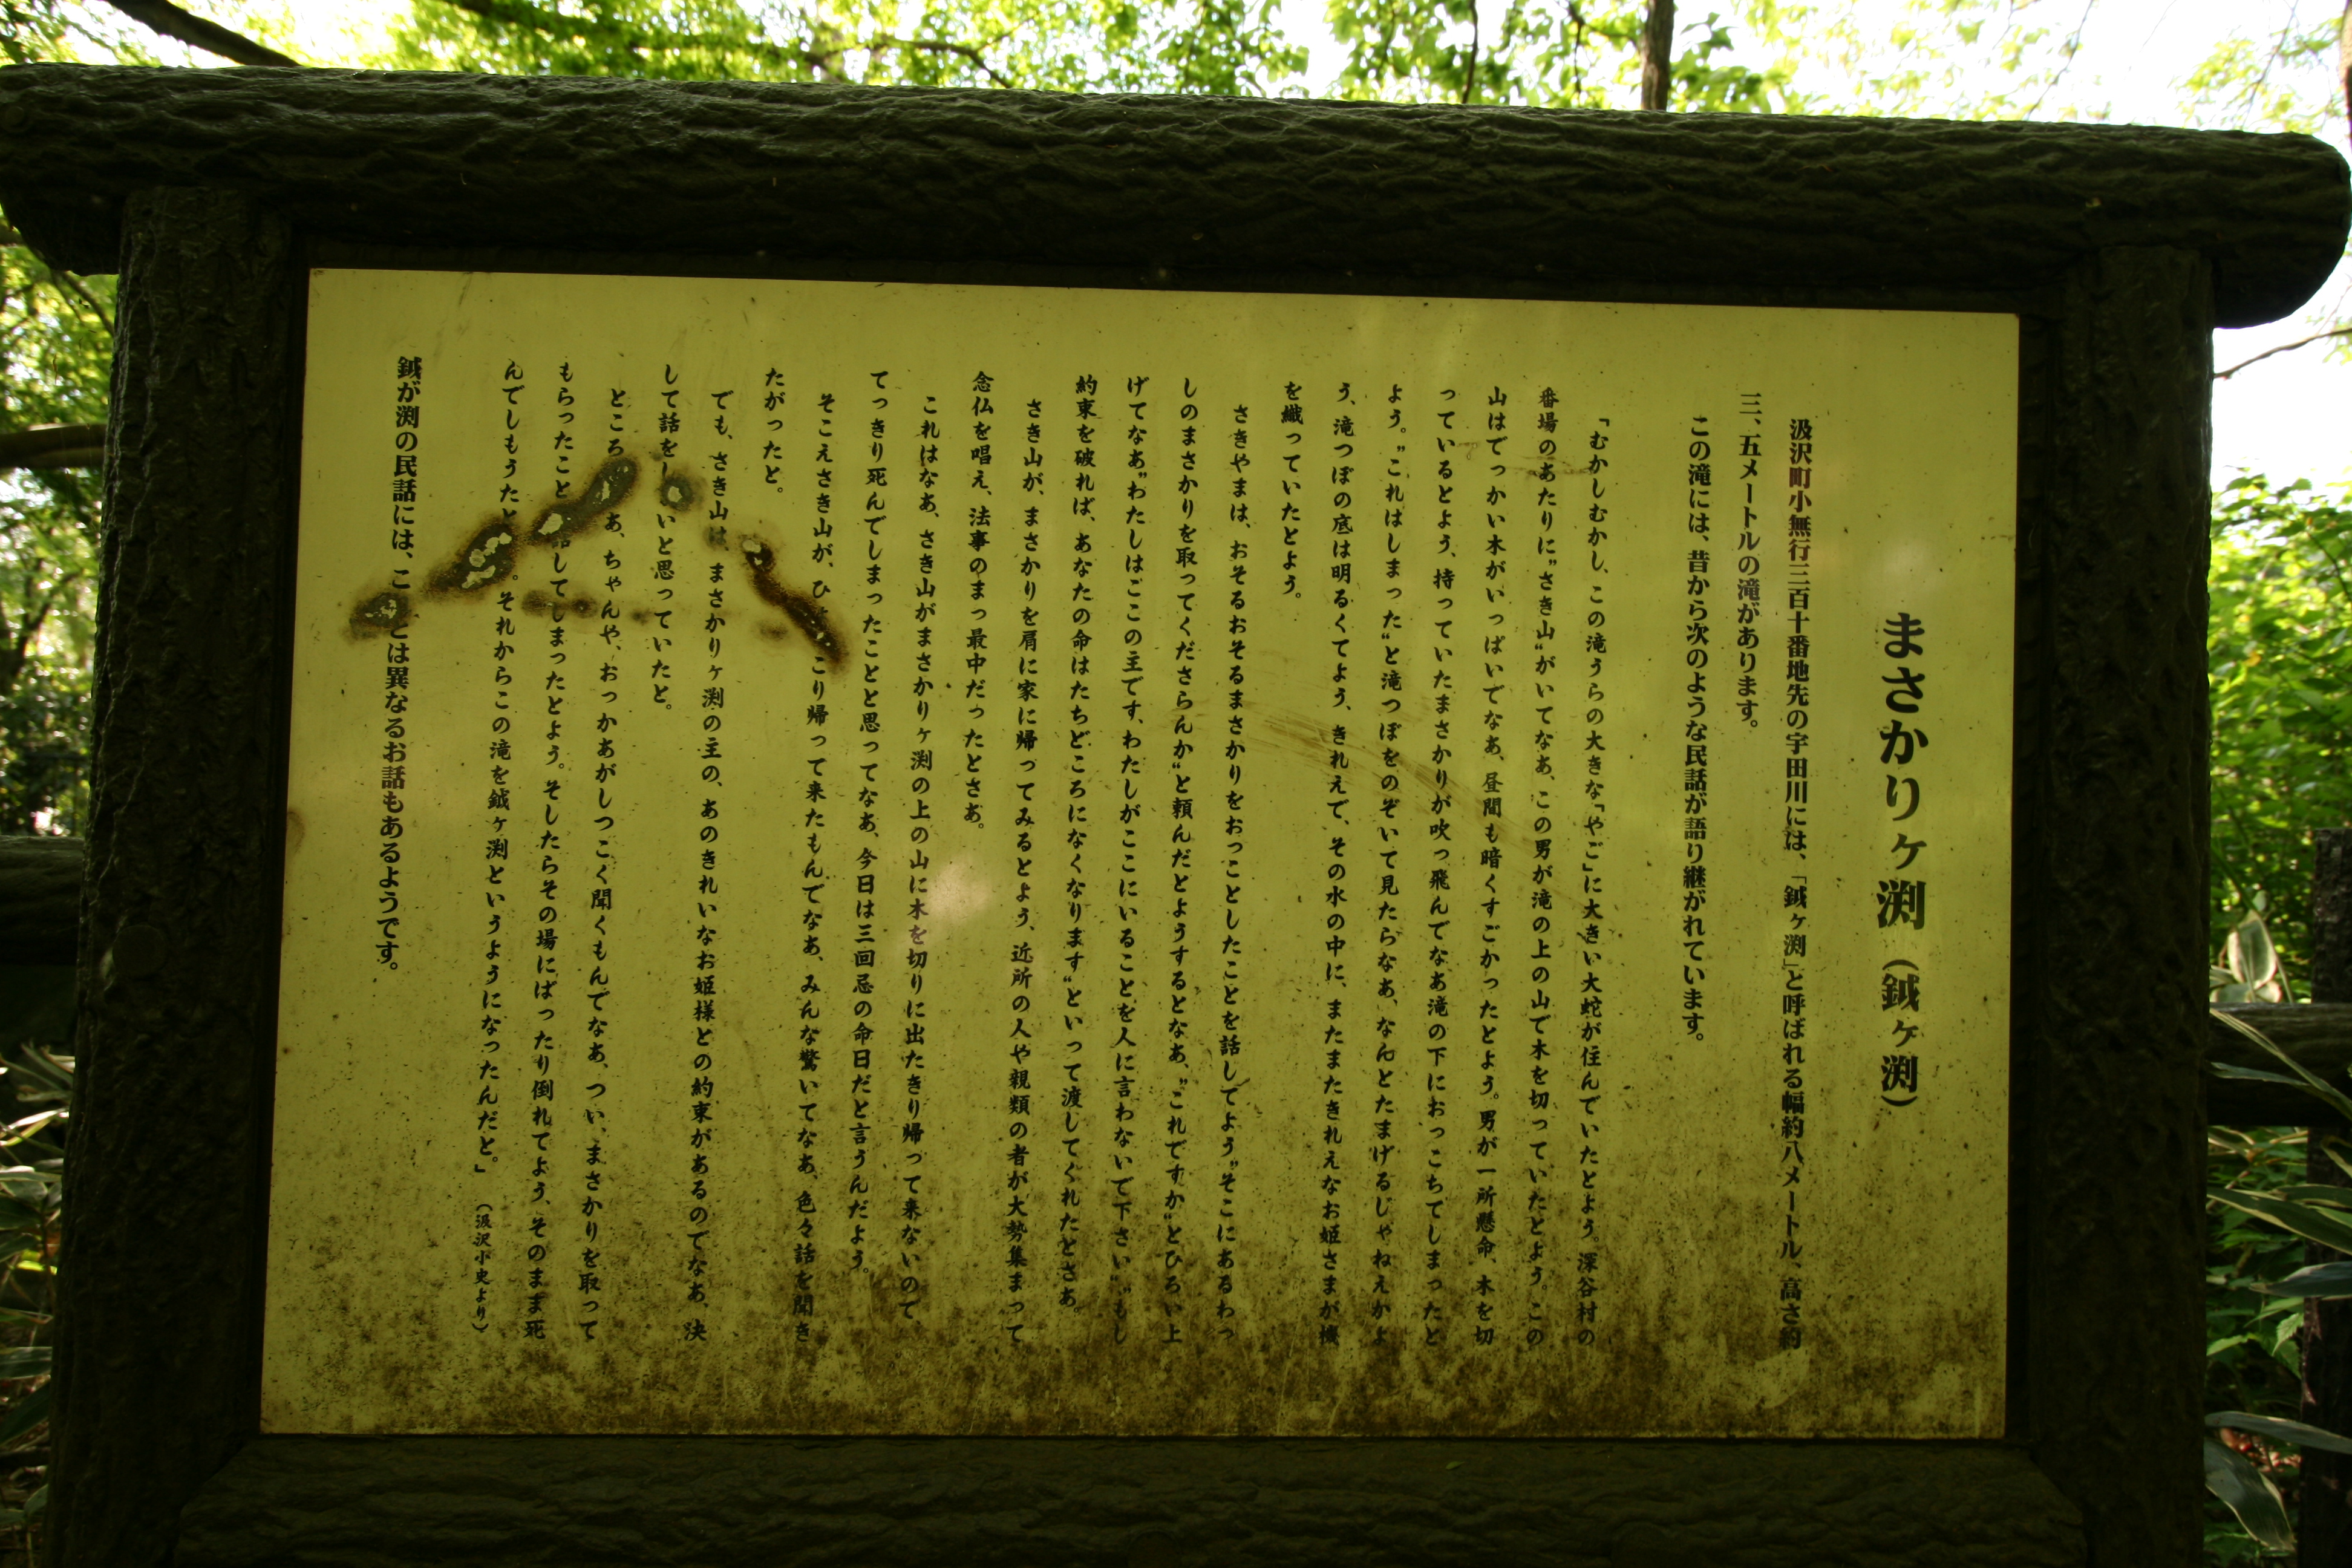 まさかりヶ渕（鉞ヶ渕）
汲沢町小無行三百十番地先の宇田川には、「鉞ヶ渕」と呼ばれる幅約八メートル、高さ約
三、五メートルの滝があります。
この滝には、昔から次のような民話が語り継がれています。
「むかしむかし、この滝うらの大きな「やご」に大きい大蛇が住んでいたとよう。深谷村の
番場のあたりに〝さき山〟がいてなあ、この男が滝の上の山で木を切っていたとよう。この
山はでっかい木がいっぱいでなあ、昼間も暗くすごかったとよう。男が一所懸命、木を切
っているとよう、持っていたまさかりが吹っ飛んでなあ滝の下におっこちてしまったと
よう。〝これはしまった〟と滝つぼをのぞいて見たらなあ、なんとたまげるじゃねえかよ
う、滝つぼの底は明るくてよう、きれえで、その水の中に、またまたきれえなお姫さまが機
を織っていたとよう。
さきやまは、おそるおそるまさかりをおっことしたことを話してよう〝そこにあるわっ
しのまさかりを取ってくださらんか〟と頼んだとようするとなあ、〝これですか〟とひろい上
げてなあ〝わたしはごこの主です、わたしがここにいることを人に言わないで下さい〟〝もし
約束を破れば、あなたの命はたちどころになくなります〟といって渡してくれたとさあ。
さき山が、まさかりを肩に家に帰ってみるとよう、近所の人や親類の者が大勢集まって
念仏を唱え、法事のまっ最中だったとさあ。
これはなあ、さき山がまさかりヶ渕の上の山に木を切りに出たきり帰って来ないので
てっきり死んでしまったことと思ってなあ、今日は三回忌の命日だと言うんだよう。
そこえさき山が、ひ こり帰って来たもんでなあ、みんな驚いてなあ、色々話を聞き
たがったと。
でも、さき山は、まさかりヶ渕の主の、あのきれいなお姫様との約束があるのでなあ、決
して話をし いと思っていたと。
ところ あ、ちゃんや、おっかあがしつこく聞くもんでなあ、つい、まさかりを取って
もらったこと 話してしまったとよう。そしたらその場にばったり倒れてよう、そのまま死
んでしもうたと 。それからこの滝を鉞ヶ渕というようになったんだと。」（汲沢小史より）
鉞が渕の民話には、こ とは異なるお話もあるようです。